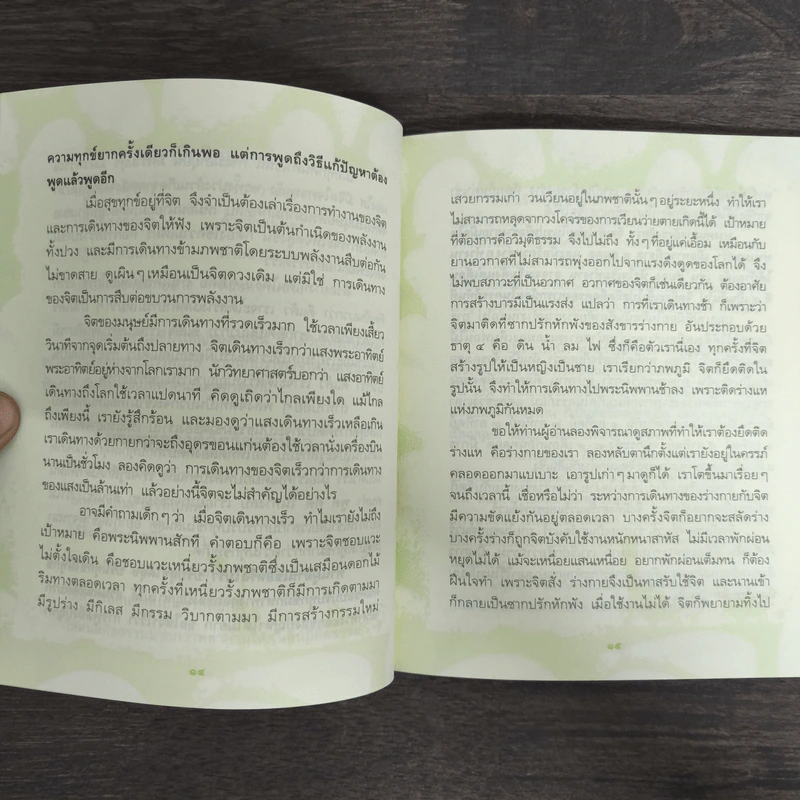 ความทุกข์ยากครั้งเดียวก็เกินพอ แต่การพูดถึงวิธีแก้ปัญหาต้อง
พูดแล้วพูดอีก
เมื่อสุขทุกข์อยู่ที่จิต จึงจำเป็นต้องเล่าเรื่องการทำงานของจิต
และการเดินทางของจิตให้ฟัง เพราะจิตเป็นต้นกำเนิดของพลังงาน
ทั้งปวง และมีการเดินทางข้ามภพชาติโดยระบบพลังงานสืบต่อกัน
ไม่ขาดสาย ดูเผินๆเหมือนเป็นจิตดวงเดิม แต่มิใช่ การเดินทาง
ของจิตเป็นการสืบต่อขบวนการพลังงาน
จิตของมนุษย์มีการเดินทางที่รวดเร็วมาก ใช้เวลาเพียงเสี้ยว
วินาทีจากจุดเริ่มต้นถึงปลายทาง จิตเดินทางเร็วกว่าแสงพระอาทิตย์
พระอาทิตย์อยู่ห่างจากโลกเรามาก นักวิทยาศาสตร์บอกว่า แสงอาทิตย์
เดินทางถึงโลกใช้เวลาแปดนาที คิดดูเถิดว่าไกลเพียงใด แม้ไกล
ถึงเพียงนี้ เรายังรู้สึกร้อน และมองดูว่าแสงเดินทางเร็วเหลือเกิน
เราเดินทางด้วยกายกว่าจะถึงอุดรขอนแก่นต้องใช้เวลานั่งเครื่องบิน
นานเป็นชั่วโมง ลองคิดดูว่า การเดินทางของจิตเร็วกว่าการเดินทาง
ของแสงเป็นล้านเท่า แล้วอย่างนี้จิตจะไม่สำคัญได้อย่างไร
อาจมีคำถามเด็กๆว่า เมื่อจิตเดินทางเร็ว ทำไมเรายังไม่ถึง
เป้าหมาย คือพระนิพพานสักที คำตอบก็คือ เพราะจิตชอบแวะ
ไม่ตั้งใจเดิน คือชอบแวะเหนี่ยวรั้งภพชาติซึ่งเป็นเสมือนดอกไม้
ริมทางตลอดเวลา ทุกครั้งที่เหนี่ยวรั้งภพชาติก็มีการเกิดตามมา
มีรูปร่าง มีกิเลส มีกรรม วิบากตามมา มีการสร้างกรรมใหม่
๑๔
เสวยกรรมเก่า วนเวียนอยู่ในภพชาตินั้นๆอยู่ระยะหนึ่ง ทำให้เรา
ไม่สามารถหลุดจากวงโคจรของการเวียนว่ายตายเกิดนี้ได้ เป้าหมาย
ที่ต้องการคือวิมุติธรรม จึงไปไม่ถึง ทั้งๆที่อยู่แค่เอื้อม เหมือนกับ
ยานอวกาศที่ไม่สามารถพุ่งออกไปจากแรงดึงดูดของโลกได้ จึง
ไม่พบสภาวะที่เป็นอวกาศ อวกาศของจิตก็เช่นเดียวกัน ต้องอาศัย
การสร้างบารมีเป็นแรงส่ง แปลว่า การที่เราเดินทางช้า ก็เพราะว่า
จิตมาติดที่ซากปรักหักพังของสังขารร่างกาย อันประกอบด้วย
ธาตุ ๔ คือ ดิน น้ำ ลม ไฟ ซึ่งก็คือตัวเรานี่เอง ทุกครั้งที่จิต
สร้างรูปให้เป็นหญิงเป็นชาย เราเรียกว่าภพภูมิ จิตก็ยึดติดใน
รูปนั้น จึงทำให้การเดินทางไปพระนิพพานช้าลง เพราะติดร่างแห
แห่งภพภูมิกันหมด
ขอให้ท่านผู้อ่านลองพิจารณาดูสภาพที่ทำให้เราต้องยึดติด
ร่างแห คือร่างกายของเรา ลองหลับตานึกตั้งแต่เรายังอยู่ในครรภ์
คลอดออกมาแบเบาะ เอารูปเก่าๆมาดูก็ได้ เราโตขึ้นมาเรื่อยๆ
จนถึงเวลานี้ เชื่อหรือไม่ว่า ระหว่างการเดินทางของร่างกายกับจิต
มีความขัดแย้งกันอยู่ตลอดเวลา บางครั้งจิตก็อยากจะสลัดร่าง
บางครั้งร่างก็ถูกจิตบังคับใช้งานหนักหนาสาหัส ไม่มีเวลาพักผ่อน
หยุดไม่ได้ แม้จะเหนื่อยแสนเหนื่อย อยากพักผ่อนเต็มทน ก็ต้อง
ฝืนใจทำ เพราะจิตสั่ง ร่างกายจึงเป็นทาสรับใช้จิต และนานเข้า
ก็กลายเป็นซากปรักหักพัง เมื่อใช้งานไม่ได้ จิตก็พยายามทิ้งไป
๑๕